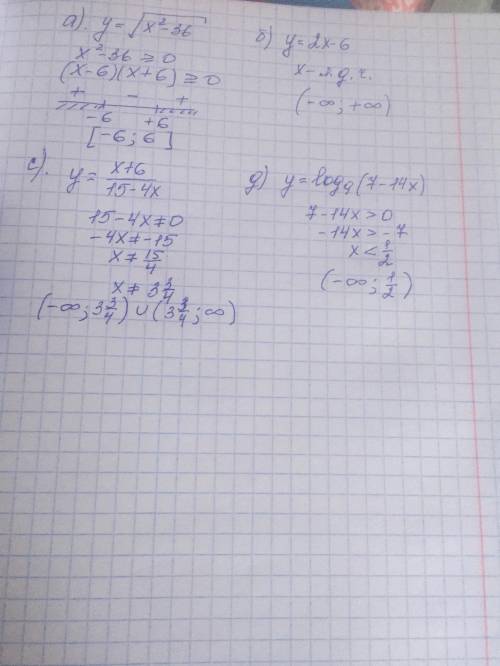 а). y = √(x²-36)
x²-36 ≥ 0
(x-6)(x+6) ≥ 0
+ - +
-6 +6
[-6; 6]
б) y = 2x-6
x - л.д.ч.
(-∞; +∞)
с). y = (x+6)/(15-4x)
15-4x ≠ 0
-4x ≠ -15
x ≠ 15/4
x ≠ 3 3/4
(-∞; 3 3/4) ∪ (3 3/4; ∞)
д) y = log₉(7-14x)
7-14x > 0
-14x > -7
x < 1/2
(-∞; 1/2)